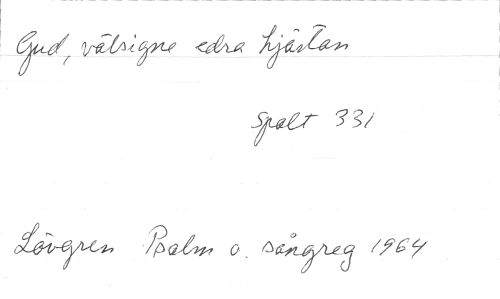 Gud, välsigne edra hjärtan
Spalt 331
Lövgren Psalm o. sångreg 1964